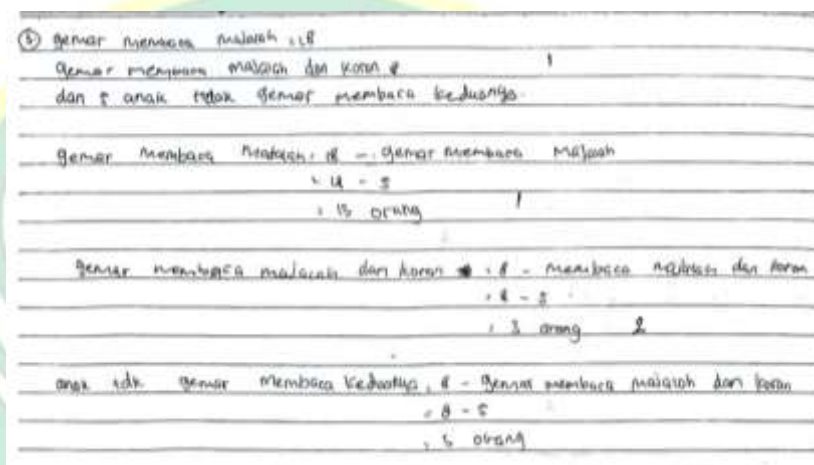 ③ gemar membaca majalah : 18
gemar membaca majalah dan koran 8 1
dan 5 anak tidak gemar membaca keduanya.
gemar membaca majalah : 18 - gemar membaca majalah
= 18 - 5
= 15 orang 1
gemar membaca majalah dan koran : 8 - membaca majalah dan koran
= 8 - 5
= 3 orang 2
anak tdk gemar membaca keduanya : 8 - gemar membaca majalah dan koran
= 8 - 5
= 5 orang